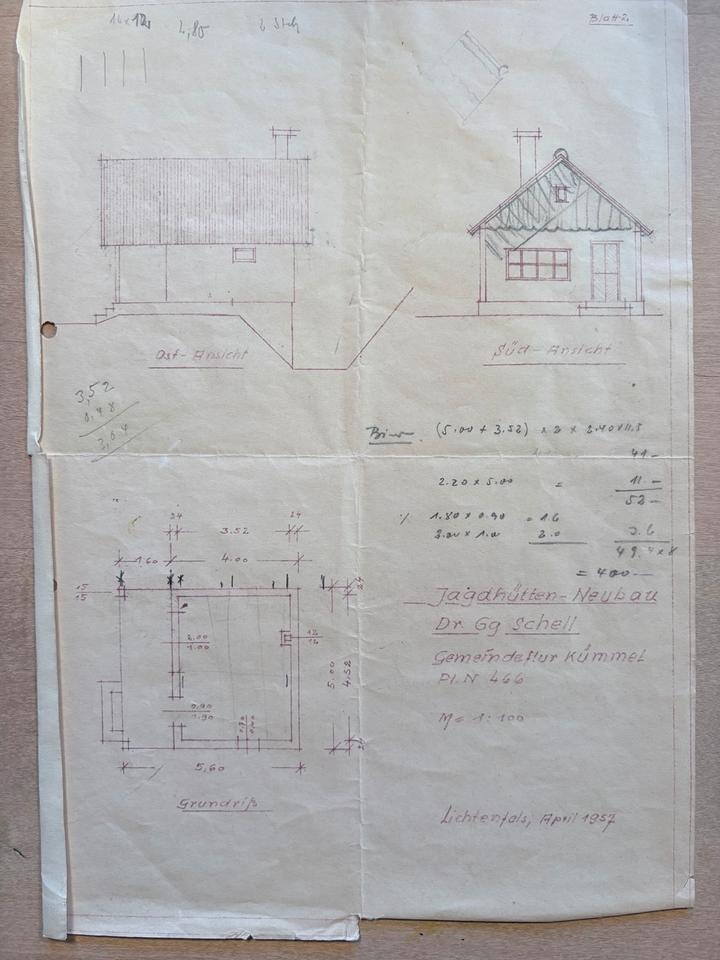 Blatt 2.
2,80
Ost-Ansicht
Süd-Ansicht
3,52
0,48
3,04
(5.00 + 3.52) x 2 x 2.40
41.-
2.20 x 5.00 = 11.-
52-
% 1.80 x 0.90 = 1.6
2.00 x 1.0 2.0 3.6
49.4 x 8
= 400-
24 24
3.52
1.60 4.00
15
15
24
2.00
1.00
12
12
5.00
4.52
0.90
1.90
5,60
Grundriß
Jagdhütten-Neubau
Dr. Gg Schell
Gemeindeflur Kümmel
Pl.N 466
M = 1:100
Lichtenfels, April 1957